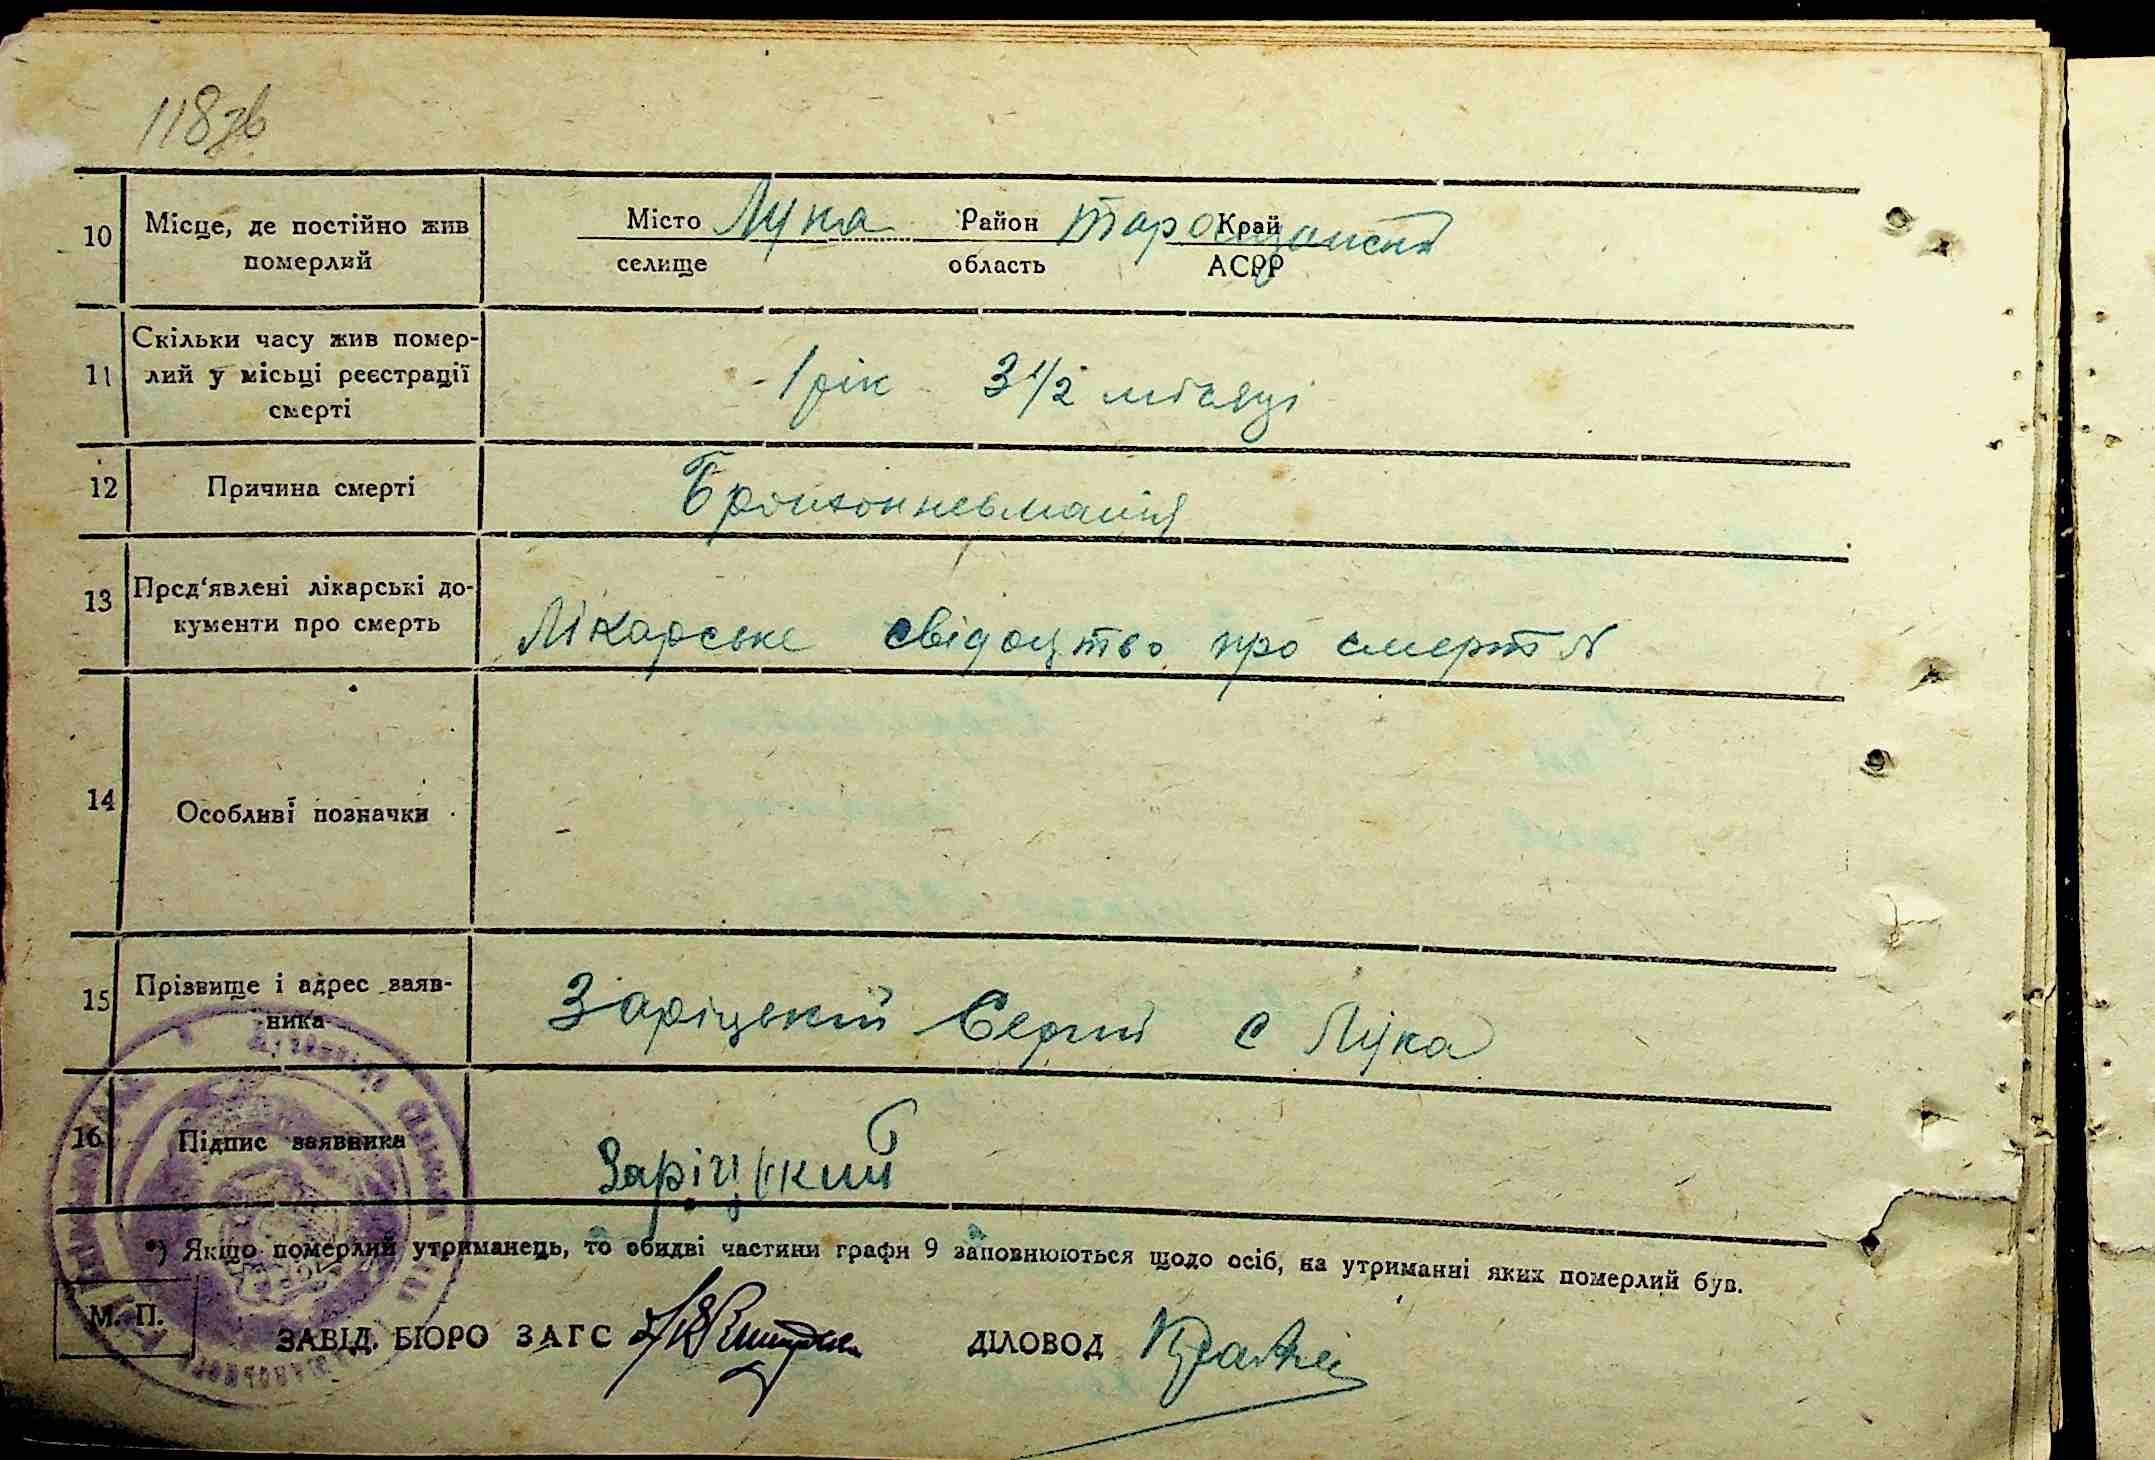 118зв
10 Місце, де постійно жив померлий Місто Лука Район Таращанськ Край
селище область АСРР
11 Скільки часу жив помер-
лий у місьці реєстрації
смерті
1 рік 3 1/2 місяці
12 Причина смерті Бронхопневманія
13 Пред'явлені лікарські до-
кументи про смерть
Лікарське свідоцтво про смерт №
14 Особливі позначки
15 Прізвище і адрес заяв-
ника
Заріцький Сергій с Лука
16 Підпис заявника Заріцький
*) Якщо померлий утриманець, то обидві частини графи 9 заповнюються щодо осіб, на утриманні яких померлий був.
М. П.
ЗАВІД. БЮРО ЗАГС ДІЛОВОД